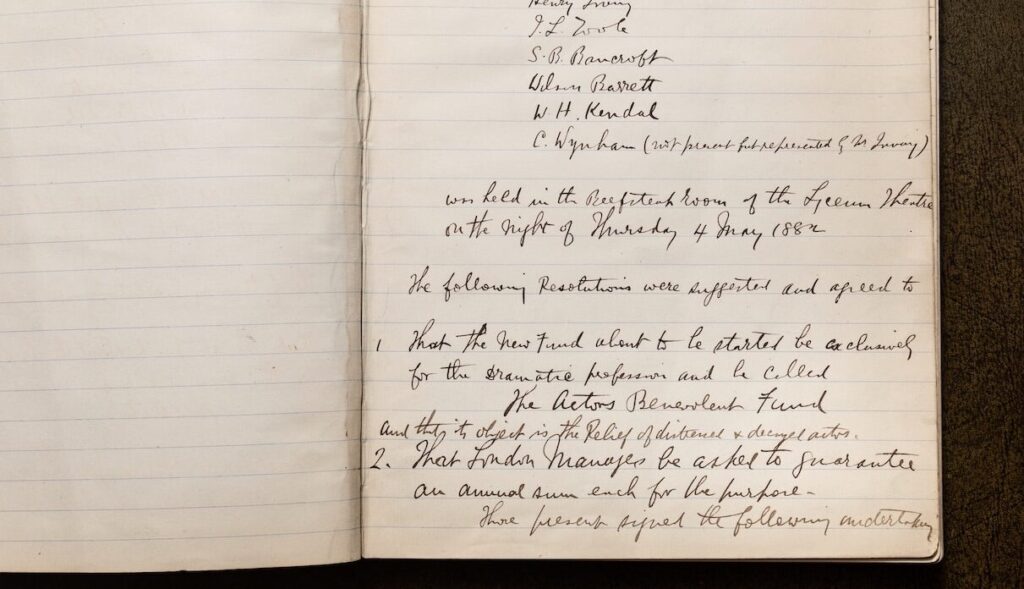 Henry Irving
J. L. Toole
S. B. Bancroft
Wilson Barrett
W. H. Kendal
C. Wynham (not present but represented by Mr Irving)
was held in the Beefsteak Room of the Lyceum Theatre
on the night of Thursday 4 May 1882
The following Resolutions were suggested and agreed to
1 That the New Fund about to be started be exclusively
for the Dramatic profession and be called
The Actors Benevolent Fund
and that its object is the Relief of distressed & decayed actors.
2. That London Managers be asked to guarantee
an annual sum each for the purpose -
Those present signed the following undertaking